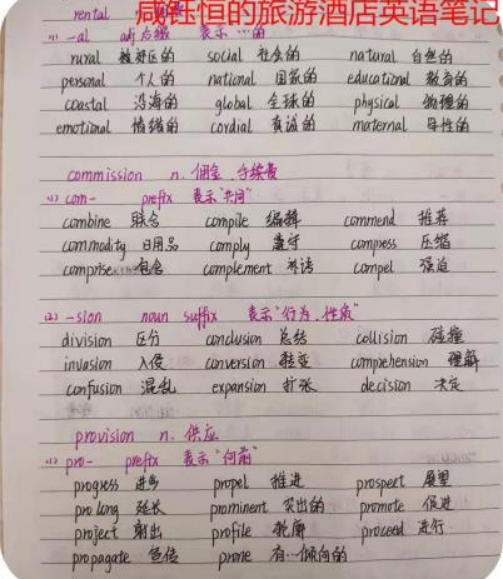 咸钰恒的旅游酒店英语笔记
rental
(1) -al adj 后缀 表示…的
rural 被郊区的 social 社会的 natural 自然的
personal 个人的 national 国家的 educational 教育的
coastal 沿海的 global 全球的 physical 物理的
emotional 情绪的 cordial 真诚的 maternal 母性的
commission n. 佣金、手续费
(1) com- prefix 表示"共同"
combine 联合 compile 编辑 commend 推荐
commodity 日用品 comply 遵守 compress 压缩
comprise 包含 complement 补语 compel 强迫
(2) -sion noun suffix 表示"行为、性质"
division 区分 conclusion 总结 collision 碰撞
invasion 入侵 conversion 转变 comprehension 理解
confusion 混乱 expansion 扩张 decision 决定
provision n. 供应
(1) pro- prefix 表示"向前"
progress 进步 propel 推进 prospect 展望
prolong 延长 prominent 突出的 promote 促进
project 射出 profile 轮廓 proceed 进行
propagate 宣传 prone 有…倾向的